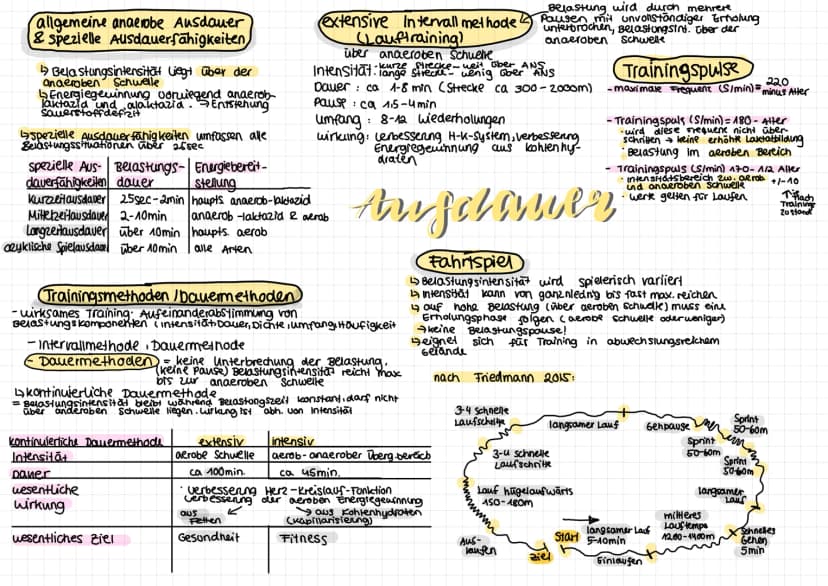 allgemeine anaerobe Ausdauer
& spezielle Ausdauerfähigkeiten
↳ Belastungsintensität liegt über der
anaeroben Schwelle
↳ Energiegewinnung vorwiegend anaerob-
laktazid und alaktazid. → Entstehung
Sauerstoffdefizit
↳ spezielle Ausdauerfähigkeiten umfassen alle
Belastungssituationen über 25sec
spezielle Aus-dauerfähigkeiten | Belastungs-dauer | Energiebereit-stellung
Kurzzeitausdauer | 25sec-2min | haupts. anaerob-laktazid
Mittelzeitausdauer | 2-10min | anaerob-laktazid & aerob
Langzeitausdauer | über 10min | haupts. aerob
azyklische Spielausdauer | über 10min | alle Arten
extensive Intervallmethode
(Lauftraining)
Belastung wird durch mehrere
Pausen mit unvollständiger Erholung
unterbrochen, Belastungsint. über der
anaeroben Schwelle
über anaeroben Schwelle
Intensität: kurze Strecke - weit über ANS
lange Strecke - wenig über ANS
Dauer: ca 1-8 min (Strecke ca 300-2000m)
Pause: ca 1,5-4min
Umfang: 8-12 Wiederholungen
Wirkung: Verbesserung H-K-System, Verbesserung
Energiegewinnung aus Kohlenhy-
draten
Trainingspulse
- maximale Frequent (S/min) = 220
minus Alter
- Trainingspuls (S/min) = 180 - Alter
· wird diese Frequent nicht über-
schritten → keine erhöhte Laktatbildung
· Belastung im aeroben Bereich
- Trainingspuls (S/min) 170 - 1/2 Alter
+/-10
· Intensitätsbereich zw. aerob
und anaeroben Schwelle
· Werte gelten für Laufen
↑ je nach
Training
zustand
Ausdauer
Trainingsmethoden/Dauermethoden
- wirksames Training: Aufeinanderabstimmung von
Belastungskomponenten (Intensität, Dauer, Dichte, Umfang, Häufigkeit
- Intervallmethode, Dauermethode
- Dauermethoden = keine Unterbrechung der Belastung,
(keine Pause) Belastungsintensität reicht max.
bis zur anaeroben Schwelle
↳ kontinuierliche Dauermethode
= Belastungsintensität bleibt während Belastungszeit konstant, darf nicht
über anderoben Schwelle liegen. Wirkung ist abh. von Intensität
kontinuierliche Dauermethode | extensiv | intensiv
Intensität | aerobe Schwelle | aerob-anaerober Überg.bereich
Dauer | ca 100min. | ca 45min.
wesentliche
Wirkung
· Verbesserung Herz-Kreislauf-Funktion
Verbesserung der aeroben Energiegewinnung
aus
Fetten
→ aus Kohlenhydraten
(Kapillarisierung)
wesentliches Ziel | Gesundheit | Fitness
Fahrtspiel
↳ Belastungsintensität wird spielerisch variiert
↳ Intensität kann von ganz niedrig bis fast max. reichen
↳ auf hohe Belastung (über aeroben Schwelle) muss eine
Erholungsphase folgen (aerobe Schwelle oder weniger)
→ keine Belastungspause!
↳ eignet sich für Training in abwechslungsreichem
Gelände
nach Friedmann 2015:
3-4 schnelle
Laufschritte
langsamer Lauf
Gehpause
Sprint
50-60m
Sprint
50-60m
Sprint
50-60m
3-4 schnelle
Laufschritte
Lauf hügelaufwärts
150-180m
langsamer
Lauf
mittleres
Lauftempo
1200-1400m
schnelles
Gehen
5min
langsamer Lauf
5-10min
Start
Aus-
laufen
Ziel
Einlaufen